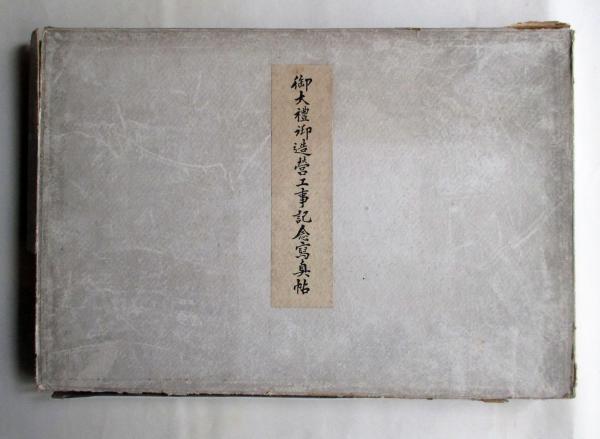 御大禮御造營工事記念寫眞帖